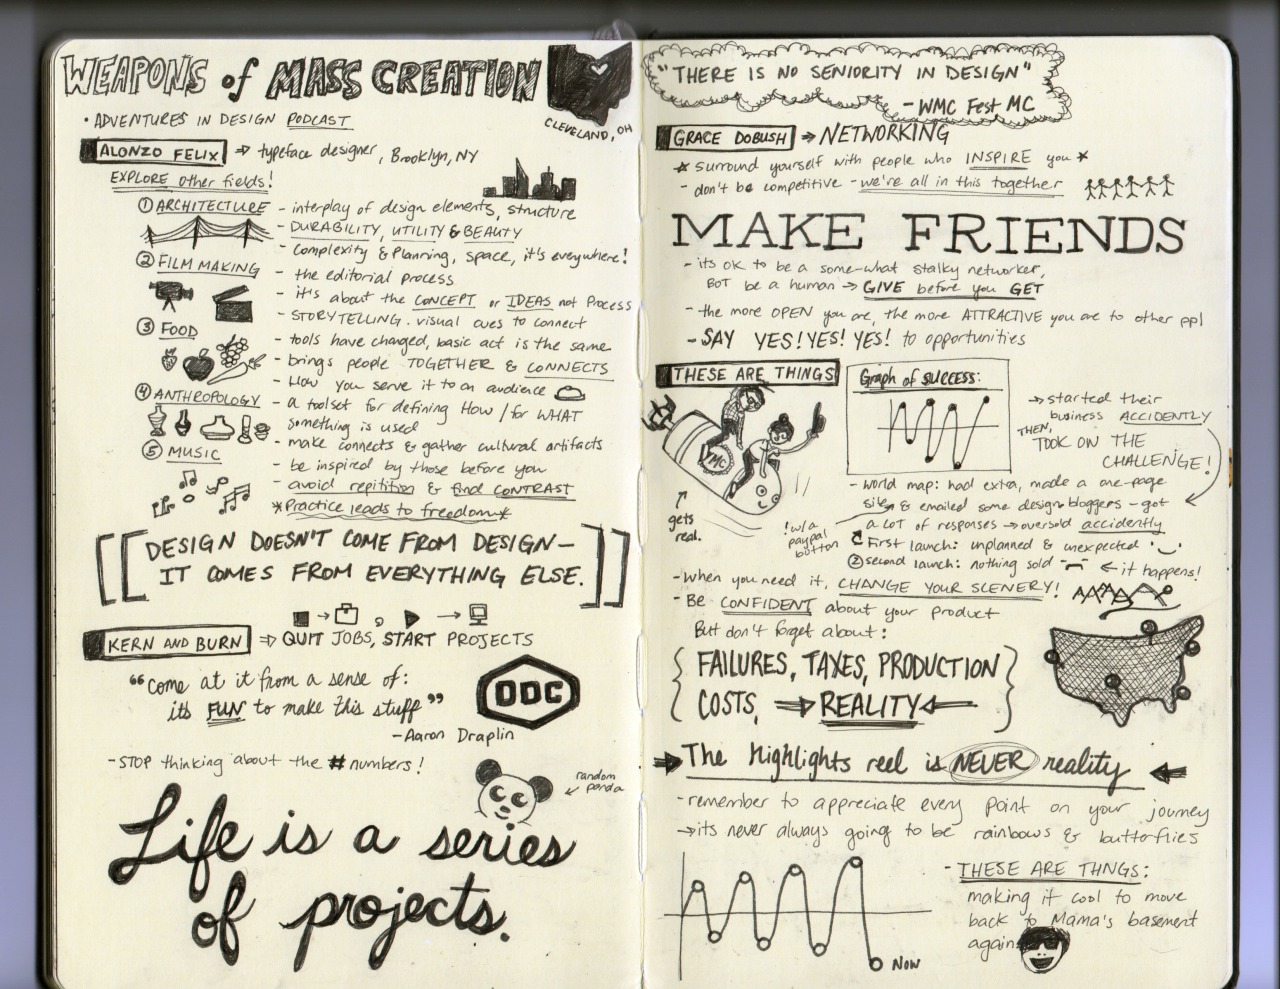 WEAPONS of MASS CREATION
CLEVELAND, OH
• ADVENTURES IN DESIGN PODCAST
ALONZO FELIX ⇒ typeface designer, Brooklyn, NY
EXPLORE other fields!
① ARCHITECTURE - interplay of design elements, structure
- DURABILITY, UTILITY & BEAUTY
- Complexity & Planning, space, it's everywhere!
② FILM MAKING - the editorial process
- it's about the CONCEPT or IDEAS not Process
- STORYTELLING. visual cues to connect
③ FOOD - tools have changed, basic act is the same
- brings people TOGETHER & CONNECTS
- How you serve it to an audience
④ ANTHROPOLOGY - a toolset for defining How / for WHAT
something is used
- make connects & gather cultural artifacts
⑤ MUSIC - be inspired by those before you
- avoid repitition & find CONTRAST
*Practice leads to freedom*
[[DESIGN DOESN'T COME FROM DESIGN—
IT COMES FROM EVERYTHING ELSE.]]
KERN AND BURN ⇒ QUIT JOBS, START PROJECTS
"come at it from a sense of:
its FUN to make this stuff"
- Aaron Draplin
DDC
- STOP thinking about the # numbers!
random
panda
Life is a series
of projects.
"THERE IS NO SENIORITY IN DESIGN"
- WMC Fest MC
GRACE DOBUSH ⇒ NETWORKING
★ surround yourself with people who INSPIRE you ★
- don't be competitive - we're all in this together
MAKE FRIENDS
- its OK to be a some-what stalky networker,
BOT be a human → GIVE before you GET
- the more OPEN you are, the more ATTRACTIVE you are to other ppl
- SAY YES! YES! YES! to opportunities
THESE ARE THINGS
WMC
gets
real.
Graph of success:
→ started their
business ACCIDENTLY
THEN,
TOOK ON THE
CHALLENGE!
- world map: had extra, made a one-page
site & emailed some design bloggers - got
a LOT of responses → oversold accidently
! w/a
paypal
button
① First launch: unplanned & unexpected
② second launch: nothing sold ← it happens!
- when you need it, CHANGE YOUR SCENERY!
- Be CONFIDENT about your product
But don't forget about:
{FAILURES, TAXES, PRODUCTION
COSTS, ⇒ REALITY ⇐}
→ The highlights reel is NEVER reality ←
- remember to appreciate every point on your journey
→ its never always going to be rainbows & butterflies
NOW
- THESE ARE THNGS:
making it cool to move
back to Mama's basement
again.